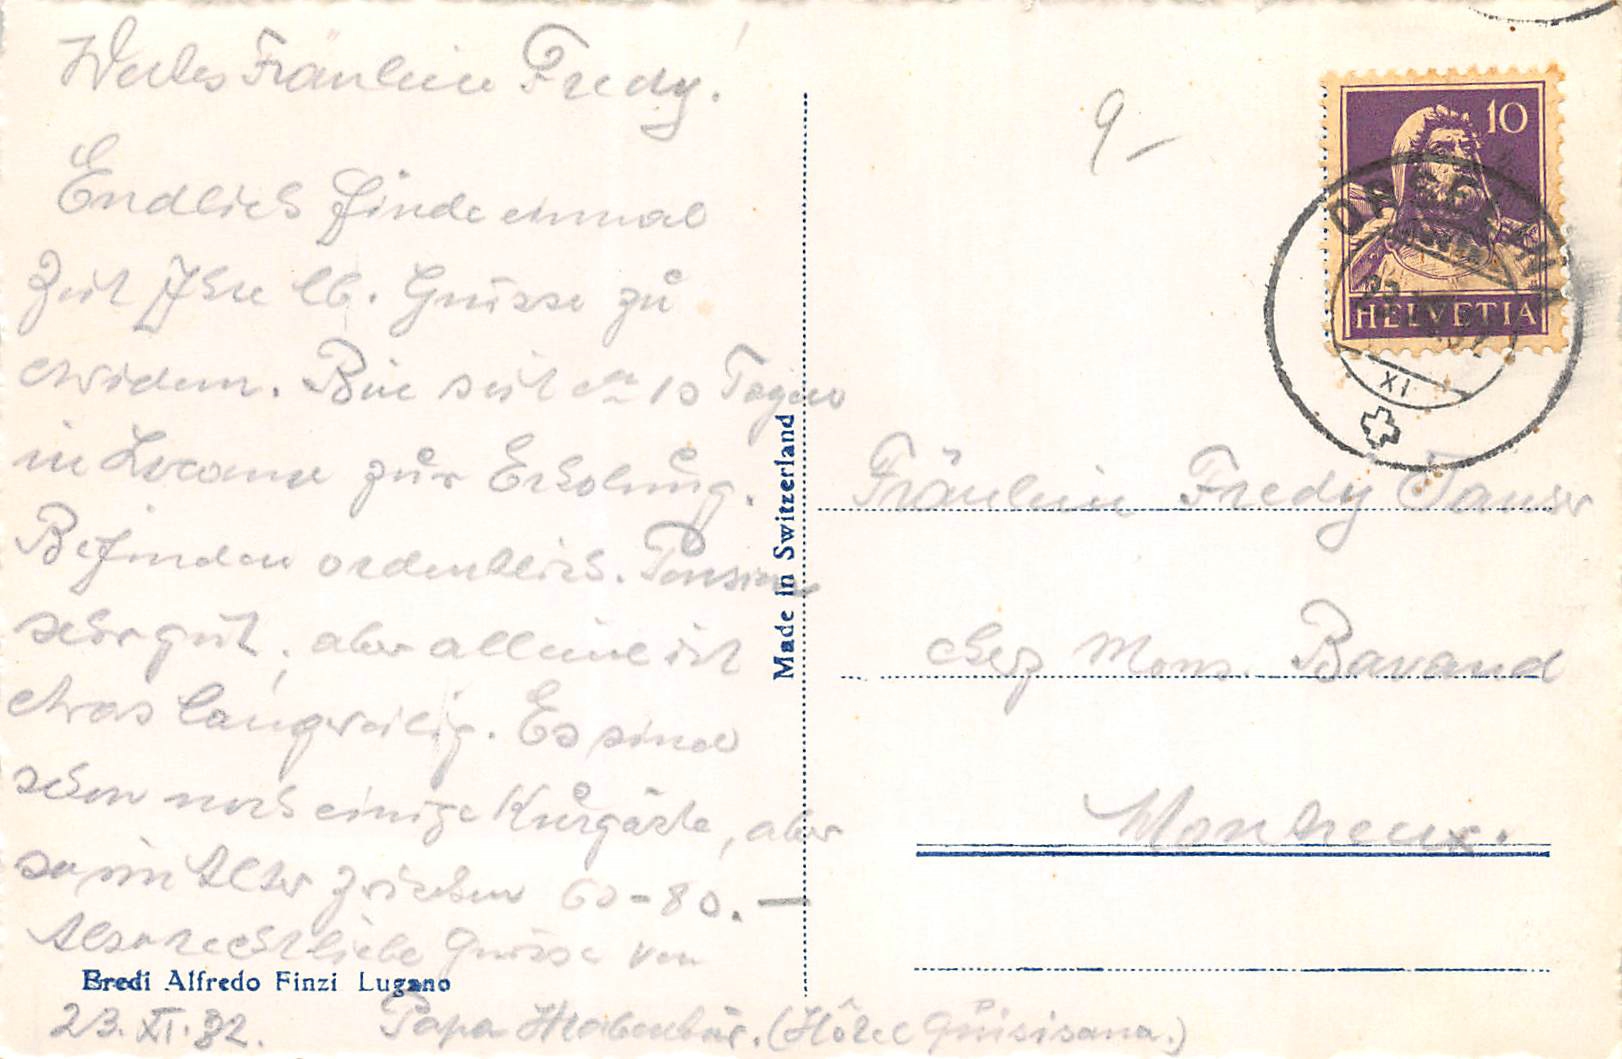 Wertes Fräulein Fredy.
Endlich finde einmal
Zeit Ihre lb. Grüsse zu
erwidern. Bin seit ca 10 Tagen
in Locarno zur Erholung.
Befinden ordentlich. Pension
sehr gut, aber alleine ist
etwas langweilig. Es sind
schon noch einige Kurgäste, aber
so im Alter zwischen 60-80. —
Also recht liebe Grüsse von
Papa (Hôtel Quisisana.)
23. XI. 32.
Eredi Alfredo Finzi Lugano
Made in Switzerland
9-
10
HELVETIA
XI
Fräulein Fredy
chez Mons. Bavaud
Montreux.